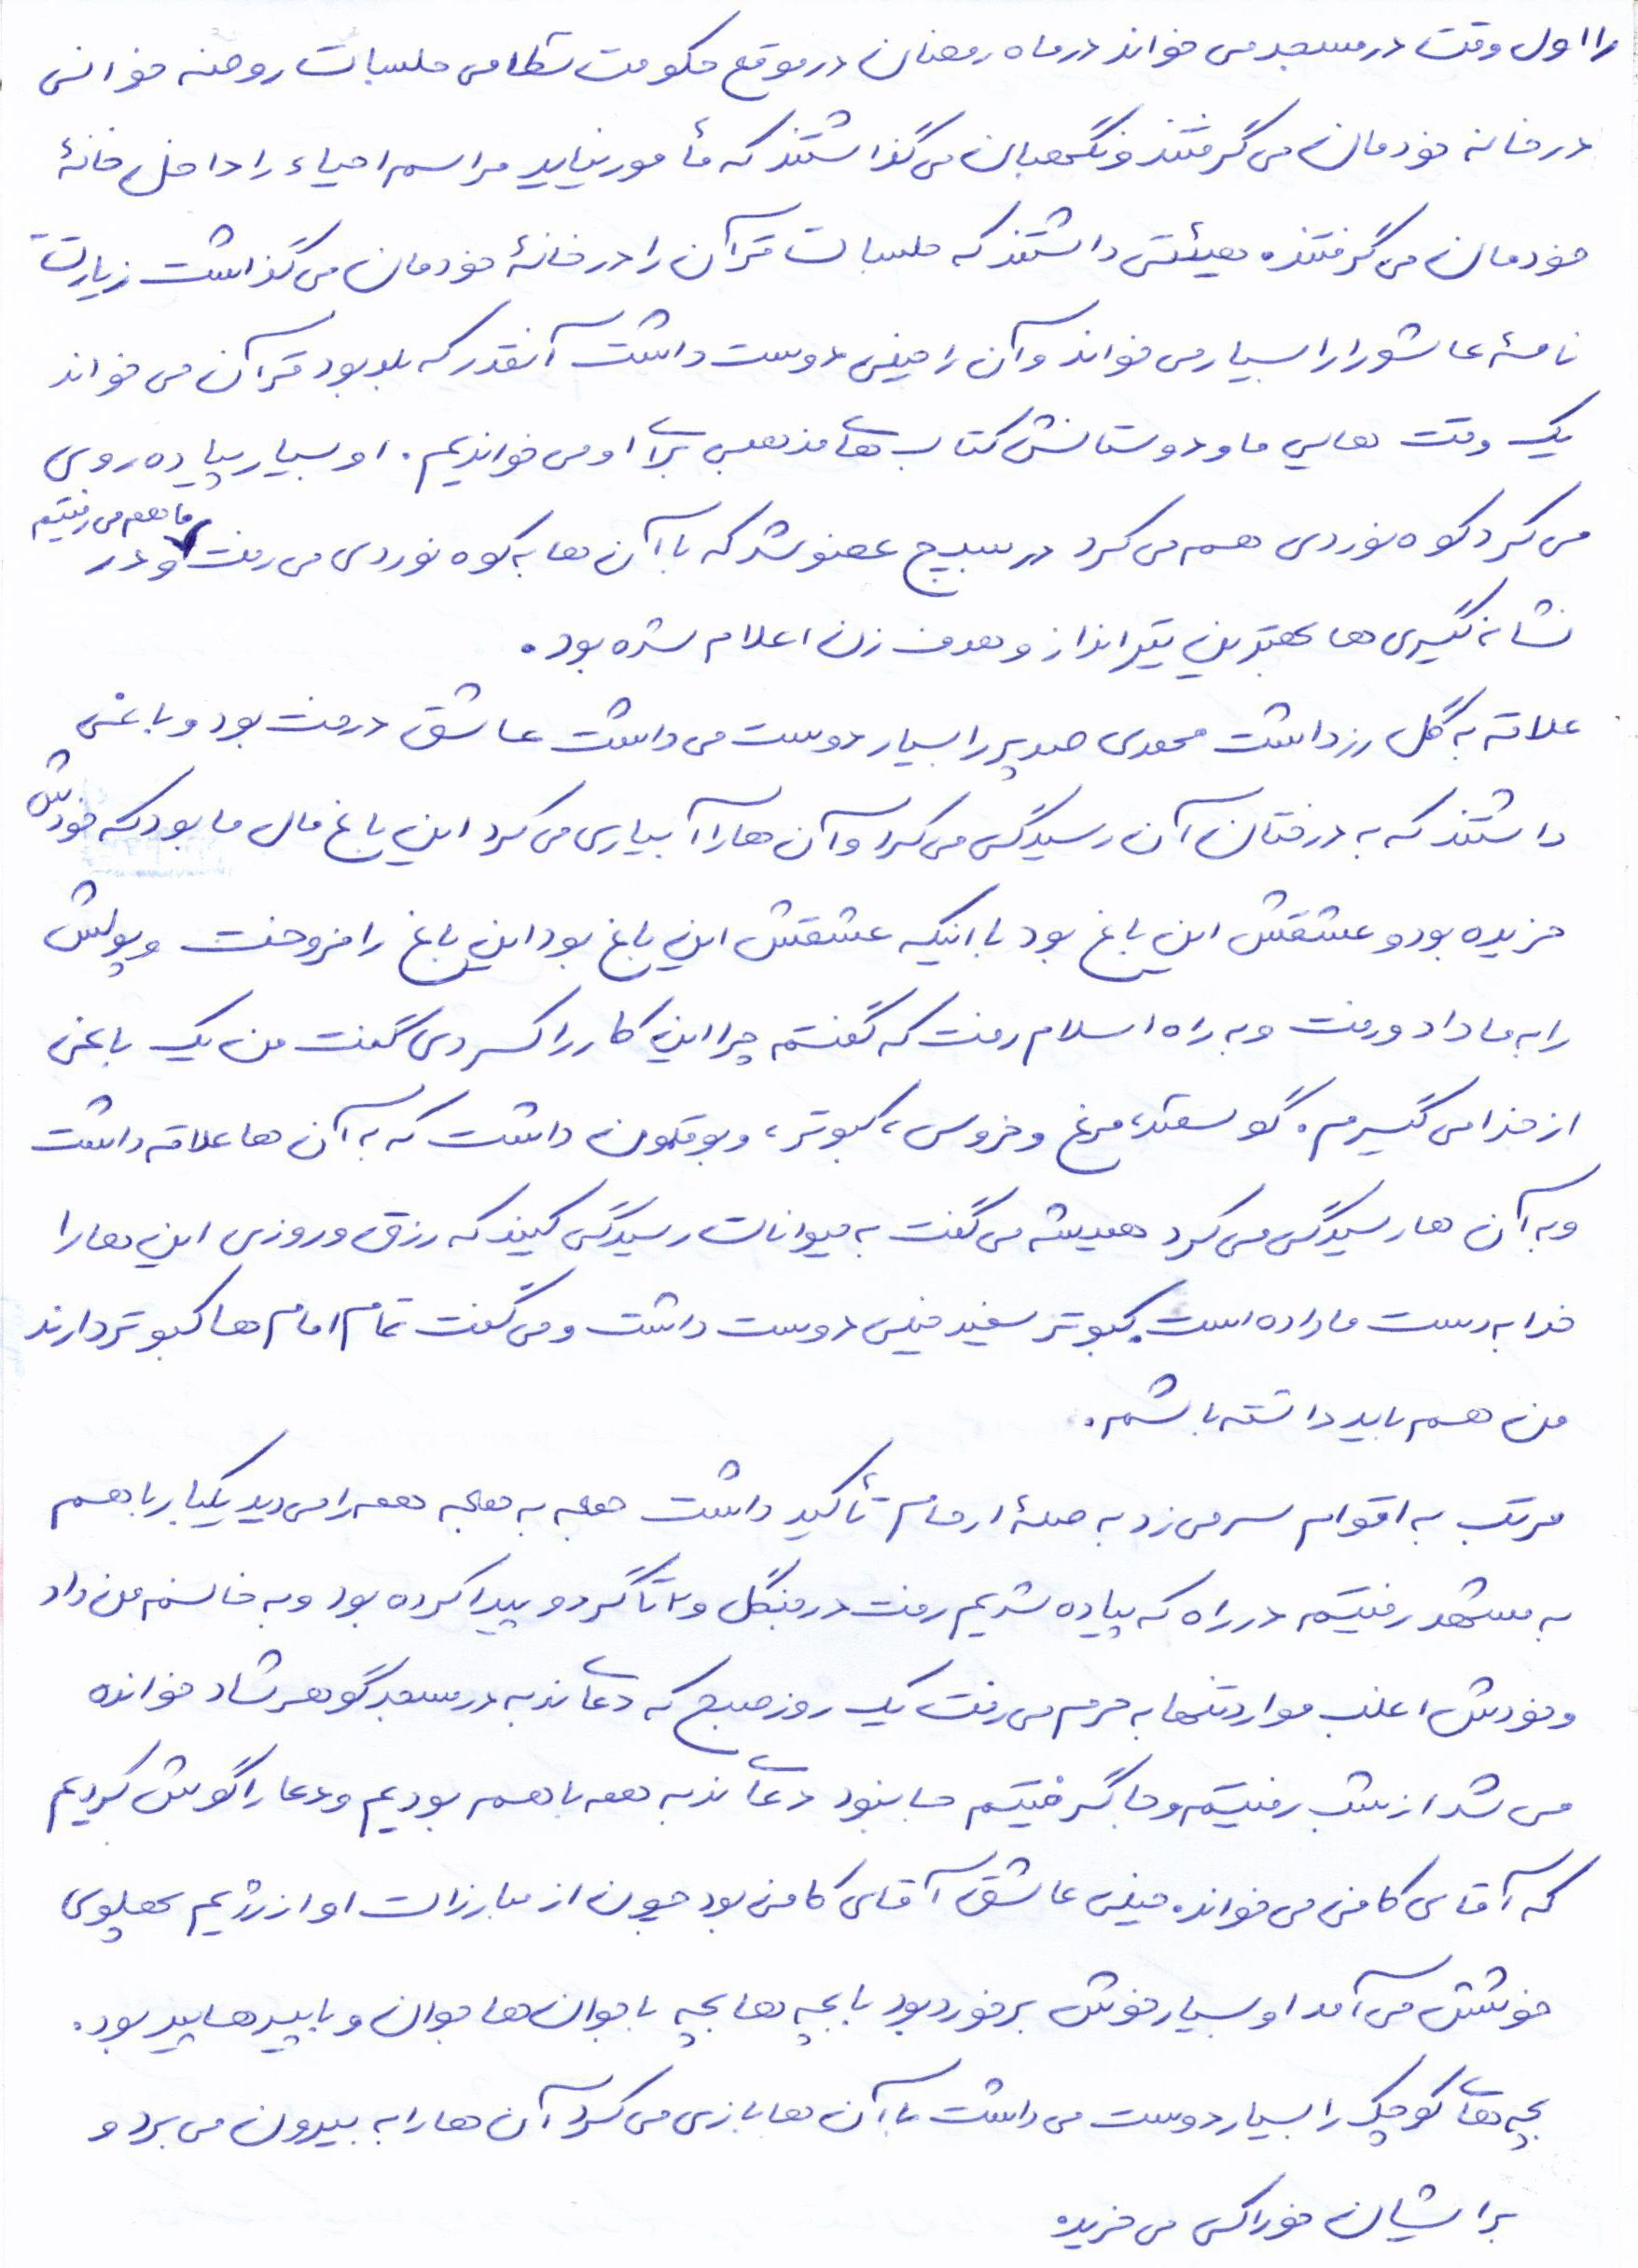 را اول وقت در مسجد می خواند در ماه رمضان در موقع حکومت نظامی جلسات روضه خوانی
در خانه خودمان می گرفتند و نگهبان می گذاشتند که مأمور نیاید مراسم احیاء را داخل خانهٔ
خودمان می گرفتند. هیئتی داشتند که جلسات قرآن را در خانهٔ خودمان می گذاشت زیارت
نامهٔ عاشورا را بسیار می خواند و آن را خیلی دوست داشت آنقدر که بلد بود قرآن می خواند
یک وقت هایی ما و دوستانش کتاب های مذهبی برای او می خواندیم. او بسیار پیاده روی
می کرد کوه نوردی هم می کرد در بسیج عضو شد که با آن ها به کوه نوردی می رفت ما هم می رفتیم و در
نشانه گیری ها بهترین تیرانداز و هدف زن اعلام شده بود.
علاقه به گل رز داشت محمدی صدپر را بسیار دوست می داشت عاشق درخت بود و باغی
داشتند که به درختان آن رسیدگی می کرد و آن ها را آبیاری می کرد این باغ مال ما بود که خودش
خریده بود و عشقش این باغ بود با اینکه عشقش این باغ بود این باغ را فروخت و پولش
را به ما داد و رفت و به راه اسلام رفت که گفتم چرا این کار را کردی گفت من یک باغی
از خدا می گیرم. گوسفند، مرغ و خروس، کبوتر، و بوقلمون داشت که به آن ها علاقه داشت
و به آن ها رسیدگی می کرد همیشه می گفت به حیوانات رسیدگی کنید که رزق و روزی این ها را
خدا به دست ما داده است. کبوتر سفید خیلی دوست داشت و می گفت تمام امام ها کبوتر دارند
من هم باید داشته باشم.
مرتب به اقوام سر می زد به صلهٔ ارحام تأکید داشت جمعه به جمعه همه را می دید یکبار با هم
به مشهد رفتیم در راه که پیاده شدیم رفت در جنگل و ۲ تا گردو پیدا کرده بود و به خانم من داد
و خودش اغلب موارد تنها به حرم می رفت یک روز صبح که دعای ندبه در مسجد گوهرشاد خوانده
می شد از شب رفتیم و جا گرفتیم جا نبود دعای ندبه همه با هم بودیم و دعا را گوش کردیم
که آقای کافی می خواند. خیلی عاشق آقای کافی بود چون از مبارزات او از رژیم پهلوی
خوشش می آمد او بسیار خوش برخورد بود با بچه ها بچه با جوان ها جوان و با پیرها پیر بود.
بچه های کوچک را بسیار دوست می داشت با آن ها بازی می کرد آن ها را به بیرون می برد و
برایشان خوراکی می خرید.